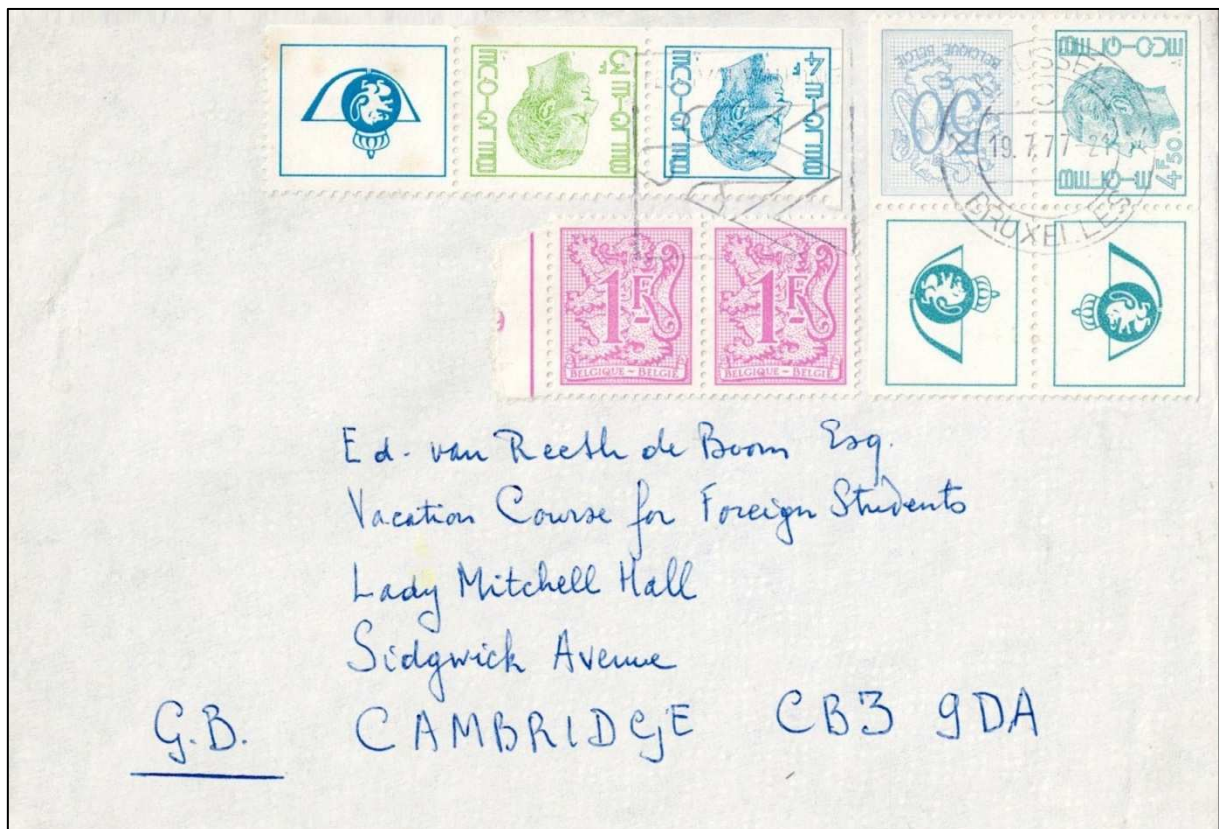 BELGIQUE BELGIË
3F
4F
50
4F50
BRUSSEL
19.7.77 21
BRUXELLES
9
1F
1F
BELGIQUE - BELGIË
BELGIQUE - BELGIË
Ed. van Reeth de Boom Esq.
Vacation Course for Foreign Students
Lady Mitchell Hall
Sidgwick Avenue
G.B. CAMBRIDGE CB3 9DA